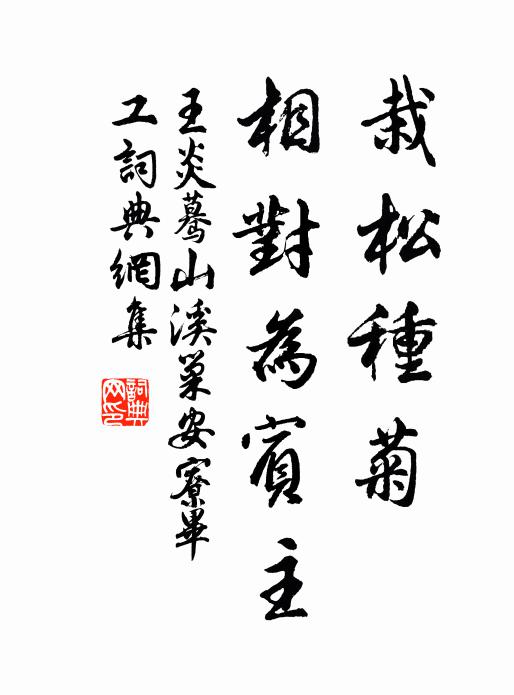 栽松種菊
相對為賓主
王炎驀山溪巢安寮畢
工詞典網集
詞典
网印